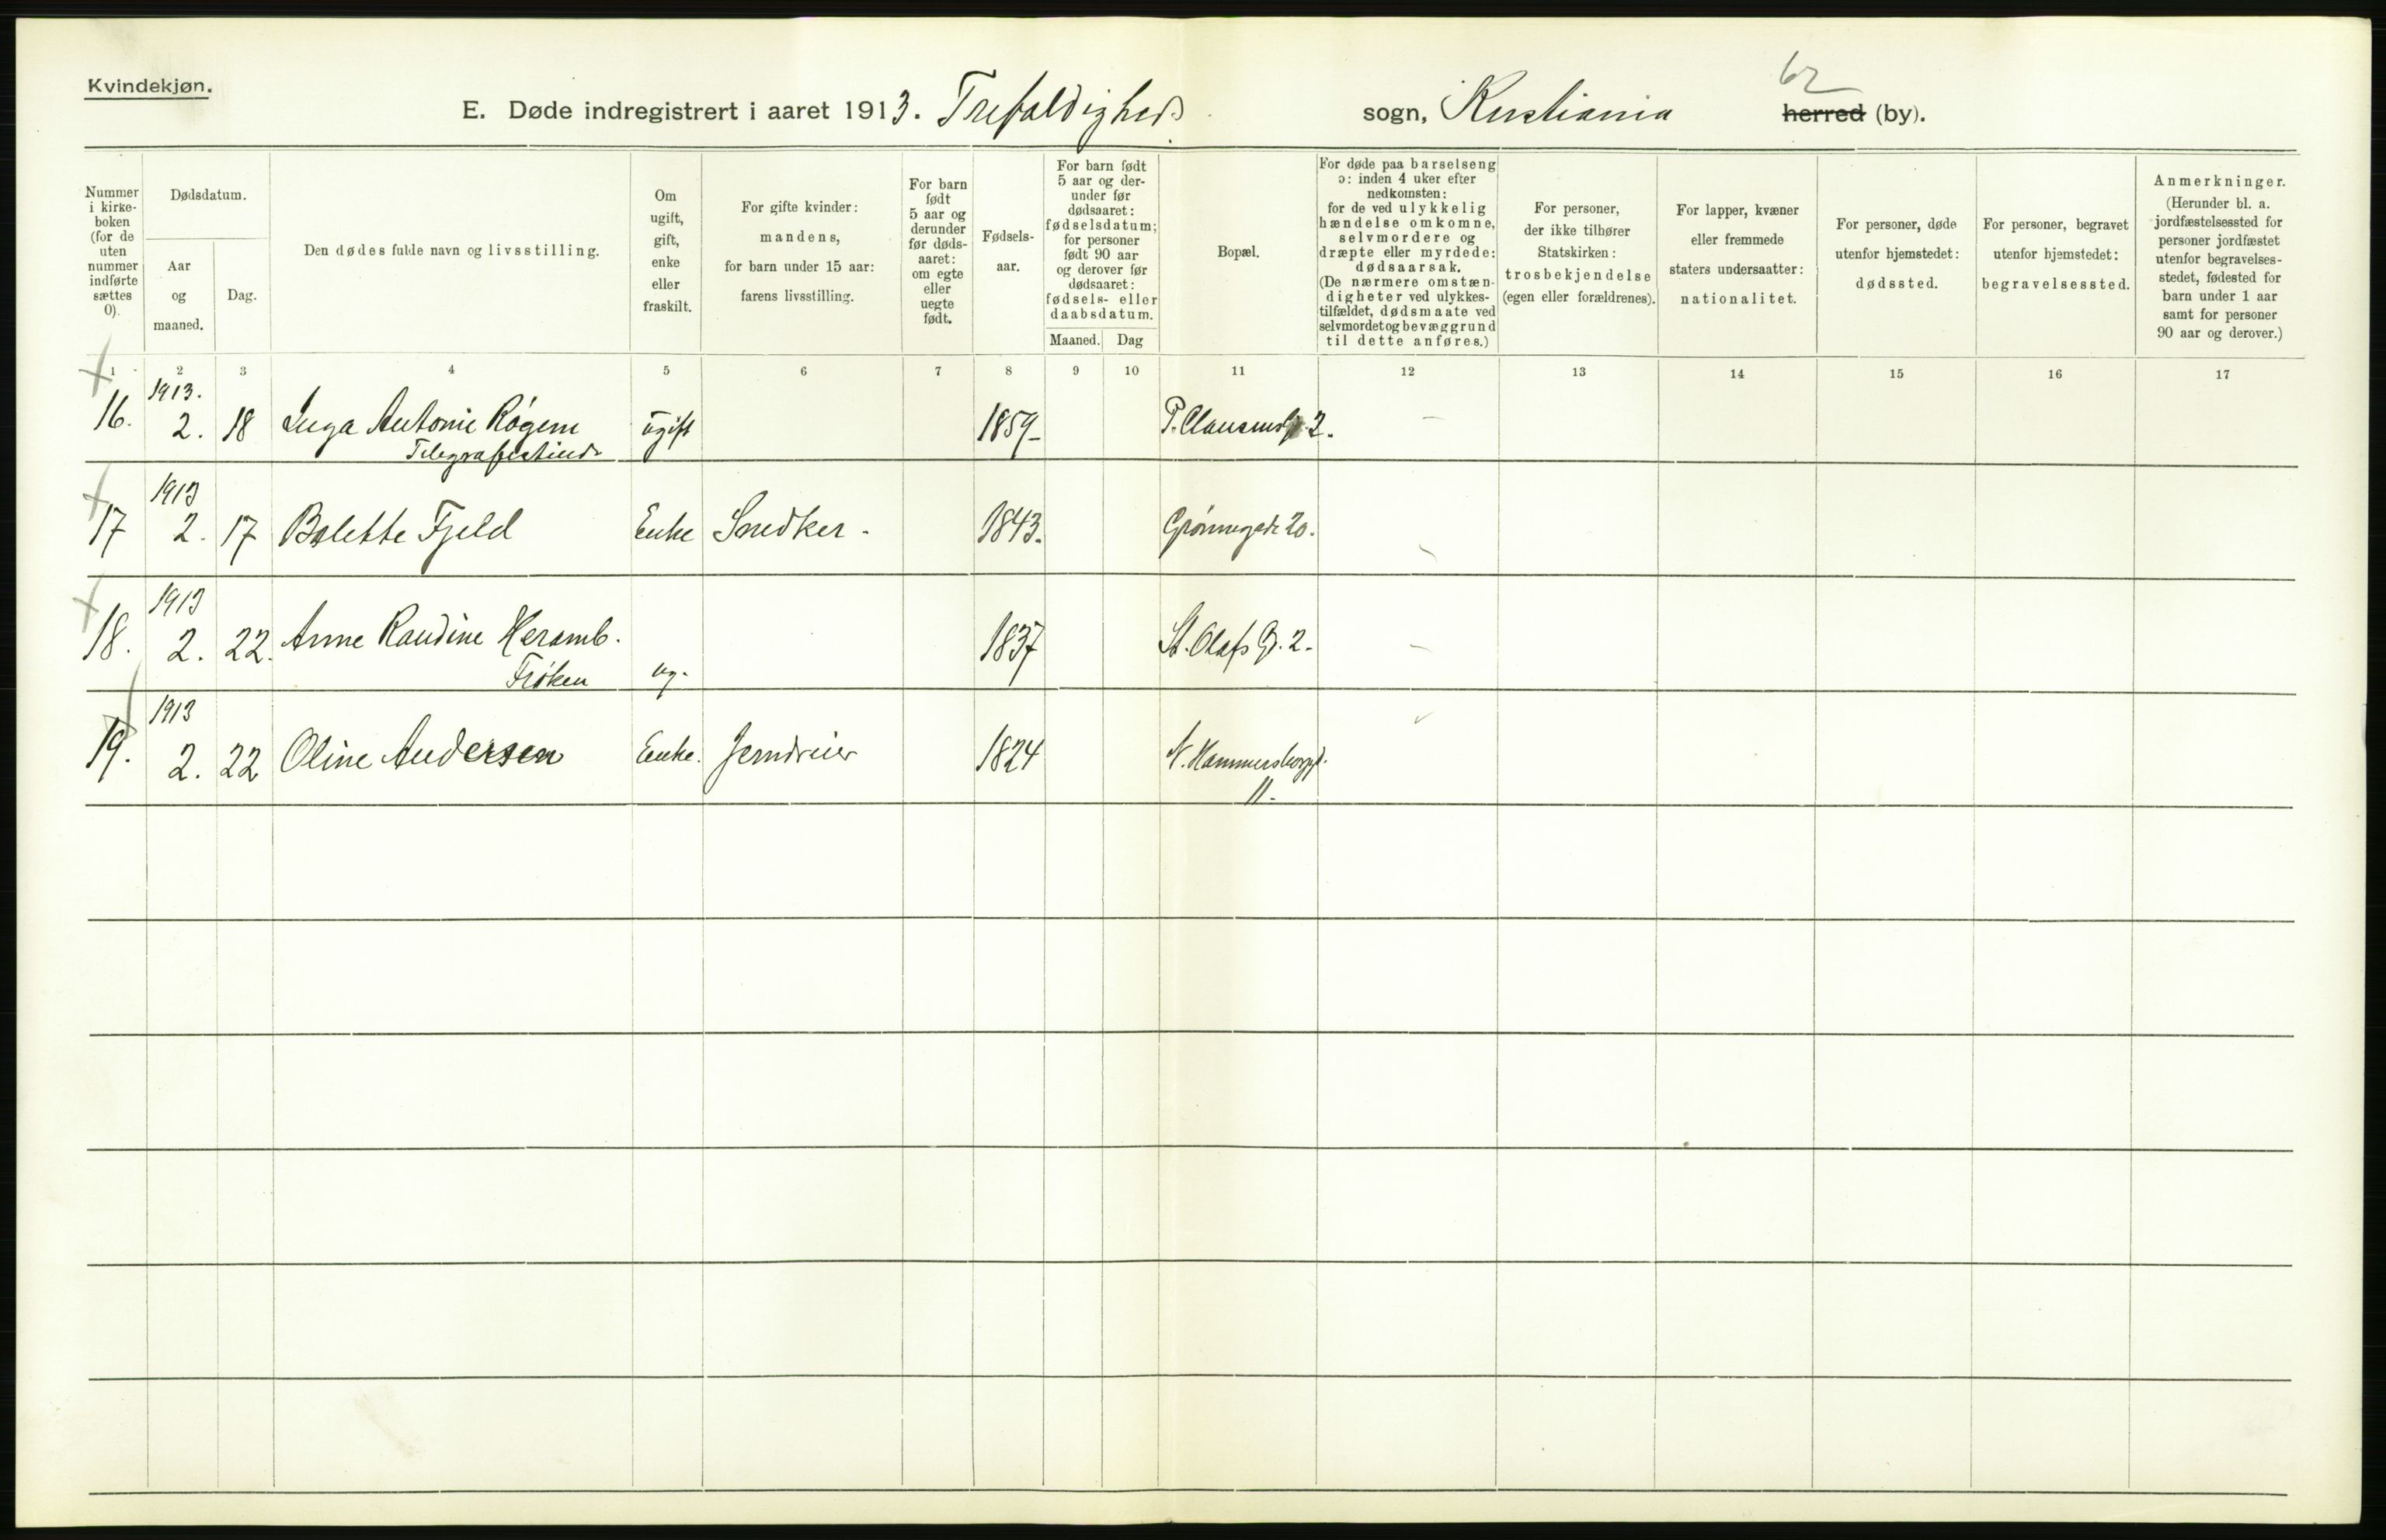 Kvindekjøn.
62
E. Døde indregistrert i aaret 1913. Trefoldigheds sogn, Kristiania herred (by).
Nummer i kirke-boken (for de uten nummer indførte sættes 0).
Dødsdatum.
Aar og maaned.
Dag.
Den dødes fulde navn og livsstilling.
Om ugift, gift, enke eller fraskilt.
For gifte kvinder: mandens, for barn under 15 aar: farens livsstilling.
For barn født 5 aar og derunder før døds-aaret: om egte eller uegte født.
Fødsels-aar.
For barn født 5 aar og der-under før dødsaaret: fødselsdatum; for personer født 90 aar og derover før dødsaaret: fødsels- eller daabsdatum.
Maaned. Dag
Bopæl.
For døde paa barselseng ɔ: inden 4 uker efter nedkomsten: for de ved ulykkelig hændelse omkomne, selvmordere og dræpte eller myrdede: dødsaarsak. (De nærmere omstæn-digheter ved ulykkes-tilfældet, dødsmaate ved selvmordet og bevæggrund til dette anføres.)
For personer, der ikke tilhører Statskirken: trosbekjendelse (egen eller forældrenes).
For lapper, kvæner eller fremmede staters undersaatter: nationalitet.
For personer, døde utenfor hjemstedet: dødssted.
For personer, begravet utenfor hjemstedet: begravelsessted.
Anmerkninger. (Herunder bl. a. jordfæstelsessted for personer jordfæstet utenfor begravelses-stedet, fødested for barn under 1 aar samt for personer 90 aar og derover.)
1 2 3 4 5 6 7 8 9 10 11 12 13 14 15 16 17
1913.
16. 2. 18 Inga Antonie Rógem ugift 1859 - P. Clausensg. 2. -
1913
17 2. 17 Bolette Fjeld Enke Snedker - 1843. Grønnegade 20.
1913
18. 2. 22. Anne Randine Heramb. 1837 St. Olafs G. 2. -
Frøken ug.
1913
19. 2. 22 Oline Andersen Enke. Jerndreier 1824 N. Hammersborggt.
11 -